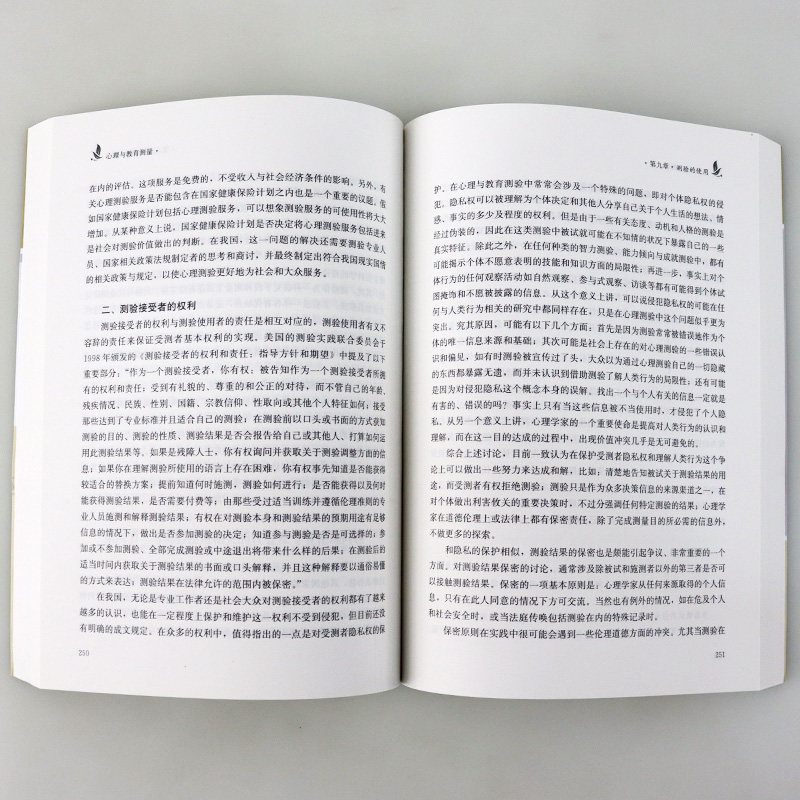 心理与教育测量·
在内的评估。这项服务是免费的，不受收入与社会经济条件的影响。另外，有
关心理测验服务是否能包含在国家健康保险计划之内也是一个重要的议题。假
如国家健康保险计划包括心理测验服务，可以想象测验服务的可使用性将大大
增加。从某种意义上说，国家健康保险计划是否决定将心理测验服务包括进来
是社会对测验价值做出的判断。在我国，这一问题的解决还需要测验专业人
员、国家相关政策法规制定者的思考和商讨，并最终制定出符合我国现实国情
的相关政策与规定，以使心理测验更好地为社会和大众服务。
二、测验接受者的权利
测验接受者的权利与测验使用者的责任是相互对应的，测验使用者有义不
容辞的责任来保证受测者基本权利的实现。美国的测验实践联合委员会于
1998年颁发的《测验接受者的权利和责任：指导方针和期望》中提及了以下
重要部分：“作为一个测验接受者，你有权：被告知作为一个测验接受者所拥
有的权利和责任；受到有礼貌的、尊重的和公正的对待，而不管自己的年龄、
残疾情况、民族、性别、国籍、宗教信仰、性取向或其他个人特征如何；接受
那些达到了专业标准并且适合自己的测验；在测验前以口头或书面的方式获知
测验的目的、测验的性质、测验结果是否会报告给自己或其他人、打算如何运
用此测验结果等。如果是残障人士，你有权询问并获取关于测验调整方面的信
息；如果你在理解测验所使用的语言上存在困难，你有权事先知道是否能获得
较适合的替换方案；提前知道何时施测，测验如何进行；是否能获得以及何时
能获得测验结果，是否需要付费等；由那些受过适当训练并遵循伦理准则的专
业人员施测和解释测验结果；有权在对测验本身和测验结果的预期用途有足够
信息的情况下，做出是否参加测验的决定；知道参与测验是否是可选择的；参
加或不参加测验、全部完成测验或中途退出将带来什么样的后果；在测验后的
适当时间内获取关于测验结果的书面或口头解释，并且这种解释要以通俗易懂
的方式来表达；测验结果在法律允许的范围内被保密。”
在我国，无论是专业工作者还是社会大众对测验接受者的权利都有了越来
越多的认识，也能在一定程度上保护和维护这一权利不受到侵犯，但目前还没
有明确的成文规定。在众多的权利中，值得指出的一点是对受测者隐私权的保
250
·第九章·测验的使用
护。在心理与教育测验中常常会涉及一个特殊的问题，即对个体隐私权的侵
犯。隐私权可以被理解为个体决定和其他人分享自己关于个人生活的想法、情
感、事实的多少及程度的权利。但是由于一些有关态度、动机和人格的测验是
经过伪装的，因此在这类测验中被试就可能在不知情的状况下暴露自己的一些
真实特征。除此之外，在任何种类的智力测验、能力倾向与成就测验中，都有
可能揭示个体不愿意表明的技能和知识方面的局限性；再进一步，事实上对个
体行为的任何观察活动如自然观察、参与式观察、访谈等都有可能得到个体试
图掩饰和不愿被披露的信息。从这个意义上讲，可以说侵犯隐私权的可能在任
何与人类行为相关的研究中都同样存在，只是在心理测验中这个问题似乎更为
突出。究其原因，可能有以下几个方面：首先是因为测验常常被错误地作为个
体的唯一信息来源和基础；其次可能是社会上存在的对心理测验的一些错误认
识和偏见，如有时测验被宣传过了头，大众以为通过心理测验自己的一切隐藏
的东西都暴露无遗，而并未认识到借助测验了解人类行为的局限性；还有可能
是因为对侵犯隐私这个概念本身的误解。找出一个与个人有关的信息一定就是
有害的、错误的吗？事实上只有当这些信息被不当使用时，才是侵犯了个人隐
私。从另一个意义上讲，心理学家的一个重要使命是提高对人类行为的认识和
理解，而在这一目的达成的过程中，出现价值冲突几乎是无可避免的。
综合上述讨论，目前一致认为在保护受测者隐私权和理解人类行为这个争
论上可以做出一些努力来达成和解，比如：清楚地告知被试关于测验结果的用
途，而受测者有权拒绝测验；测验只是作为众多决策信息的来源渠道之一，在
对个体做出利害攸关的重要决策时，不过分强调任何特定测验的结果；心理学
家在道德伦理上或法律上都有保密责任，除了完成测量目的所必需的信息外，
不做更多的探索。
和隐私的保护相似，测验结果的保密也是颇能引起争议、非常重要的一个
方面。对测验结果保密的讨论，通常涉及除被试和施测者以外的第三者是否可
以接触测验结果。保密的一项基本原则是：心理学家从任何来源取得的个人信
息，只有在此人同意的情况下方可交流。当然也有例外的情况，如在危及个人
和社会安全时，或当法庭传唤包括测验在内的特殊记录时。
保密原则在实践中很可能会遇到一些伦理道德方面的冲突。尤其当测验在
251